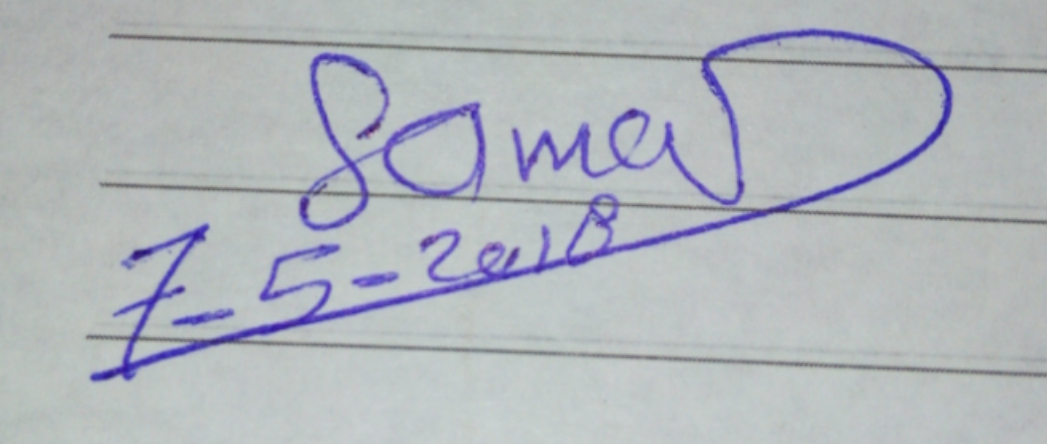 Samar
7-5-2018